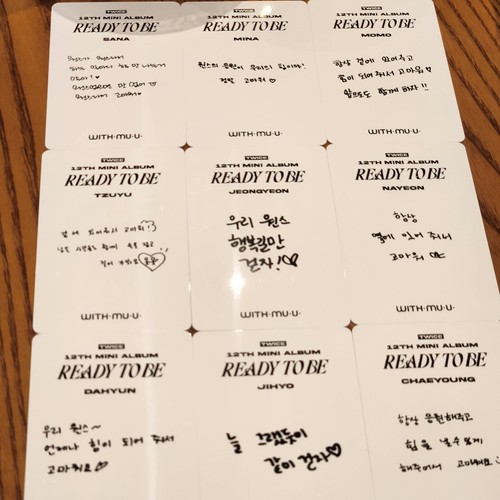 TWICE
12TH MINI ALBUM
READY TO BE
SANA
고마워~♥
WITH·MU·U·
TWICE
12TH MINI ALBUM
READY TO BE
MINA
원스의 응원이 우리의 힘이야!
정말 고마워 ♡
WITH·MU·U·
12TH MINI ALBUM
READY TO BE
MOMO
항상 곁에 있어주고
힘이 되어 줘서 고마워♡
앞으로도 함께 하자!!
WITH·MU·U·
TWICE
12TH MINI ALBUM
READY TO BE
TZUYU
곁에 있어줘서 고마워
WITH·MU·U·
TWICE
12TH MINI ALBUM
READY TO BE
JEONGYEON
우리 원스
행복길만
걷자!♡
WITH·MU·U·
TWICE
12TH MINI ALBUM
READY TO BE
NAYEON
항상
옆에 있어 줘서
고마워
WITH·MU·U·
TWICE
12TH MINI ALBUM
READY TO BE
DAHYUN
우리 원스~
언제나 힘이 되어 줘서
고마워요♡
TWICE
12TH MINI ALBUM
READY TO BE
JIHYO
늘 그랬듯이
같이 걷자♡
TWICE
12TH MINI ALBUM
READY TO BE
CHAEYOUNG
항상 응원해주고
힘을 낼 수 있게
해주어서 고마워요